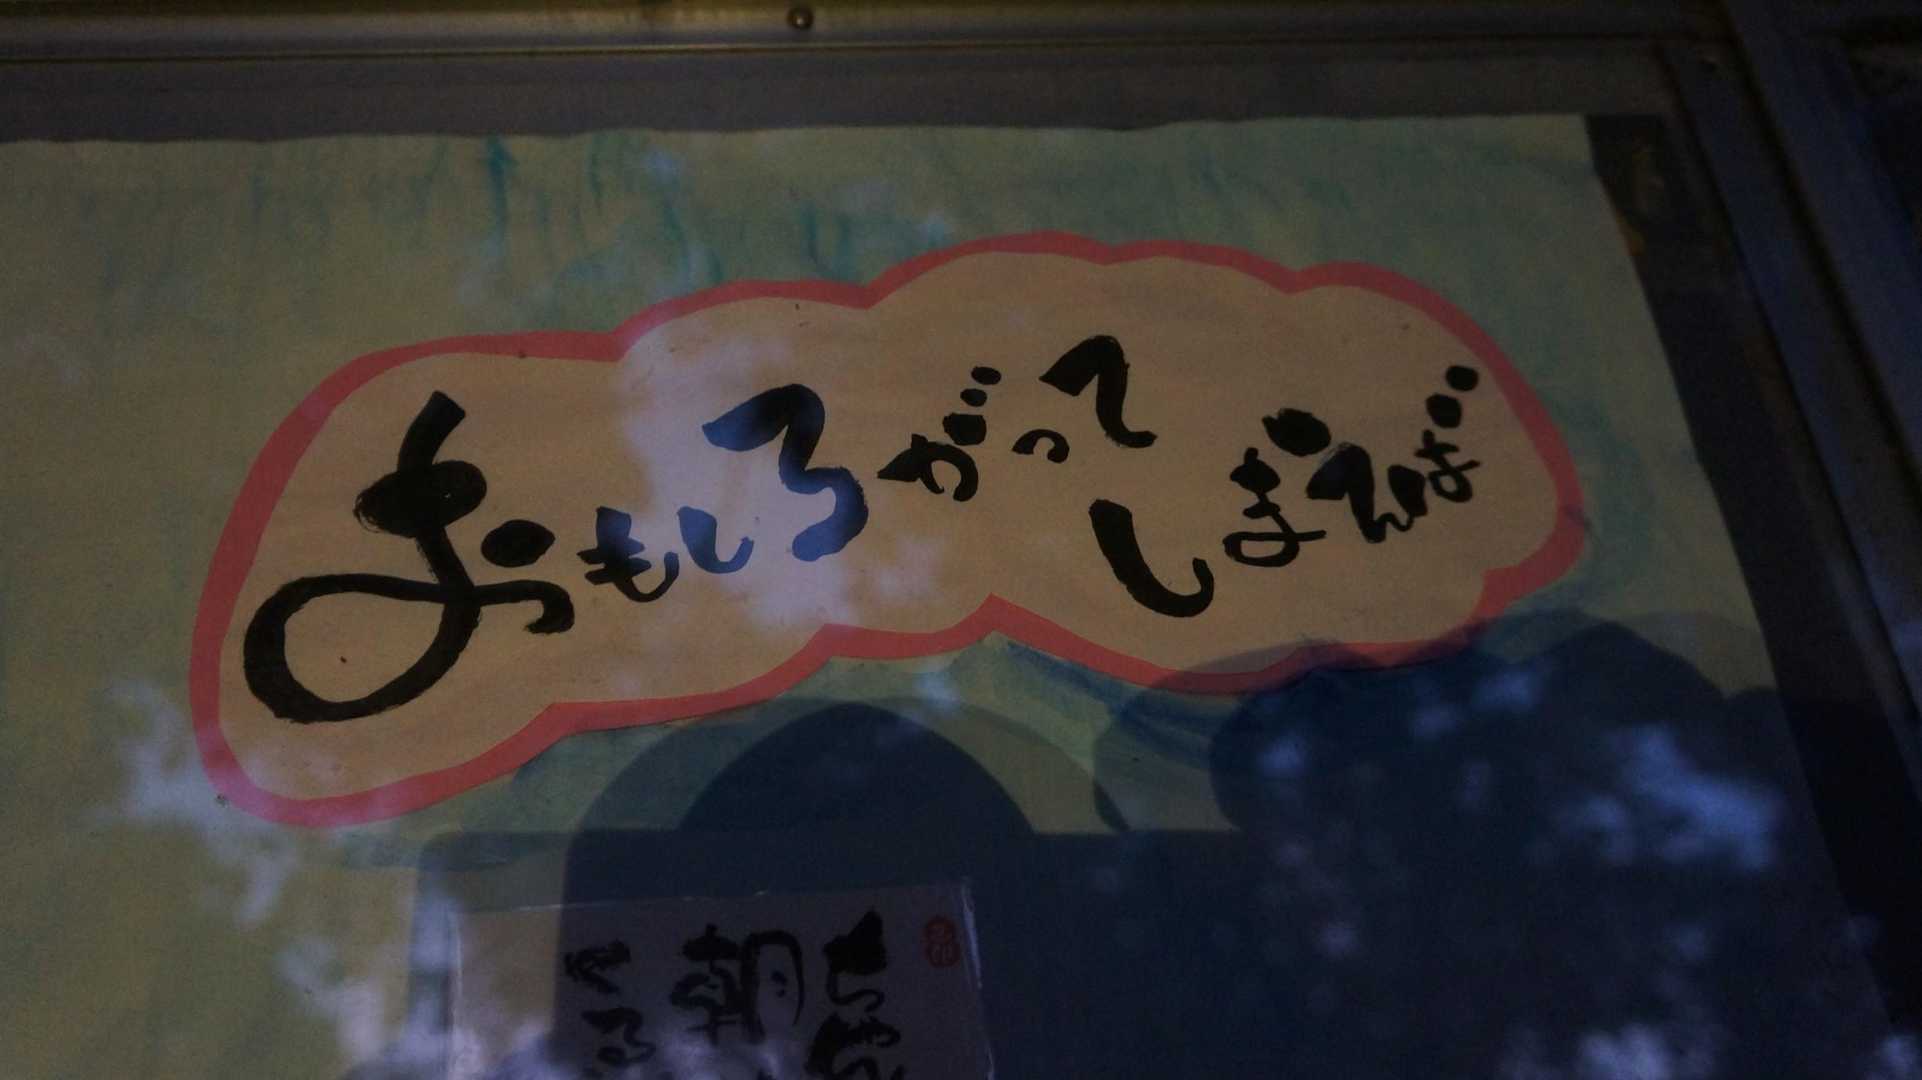 おもしろがって
しまえば
ちゃん
朝
やる